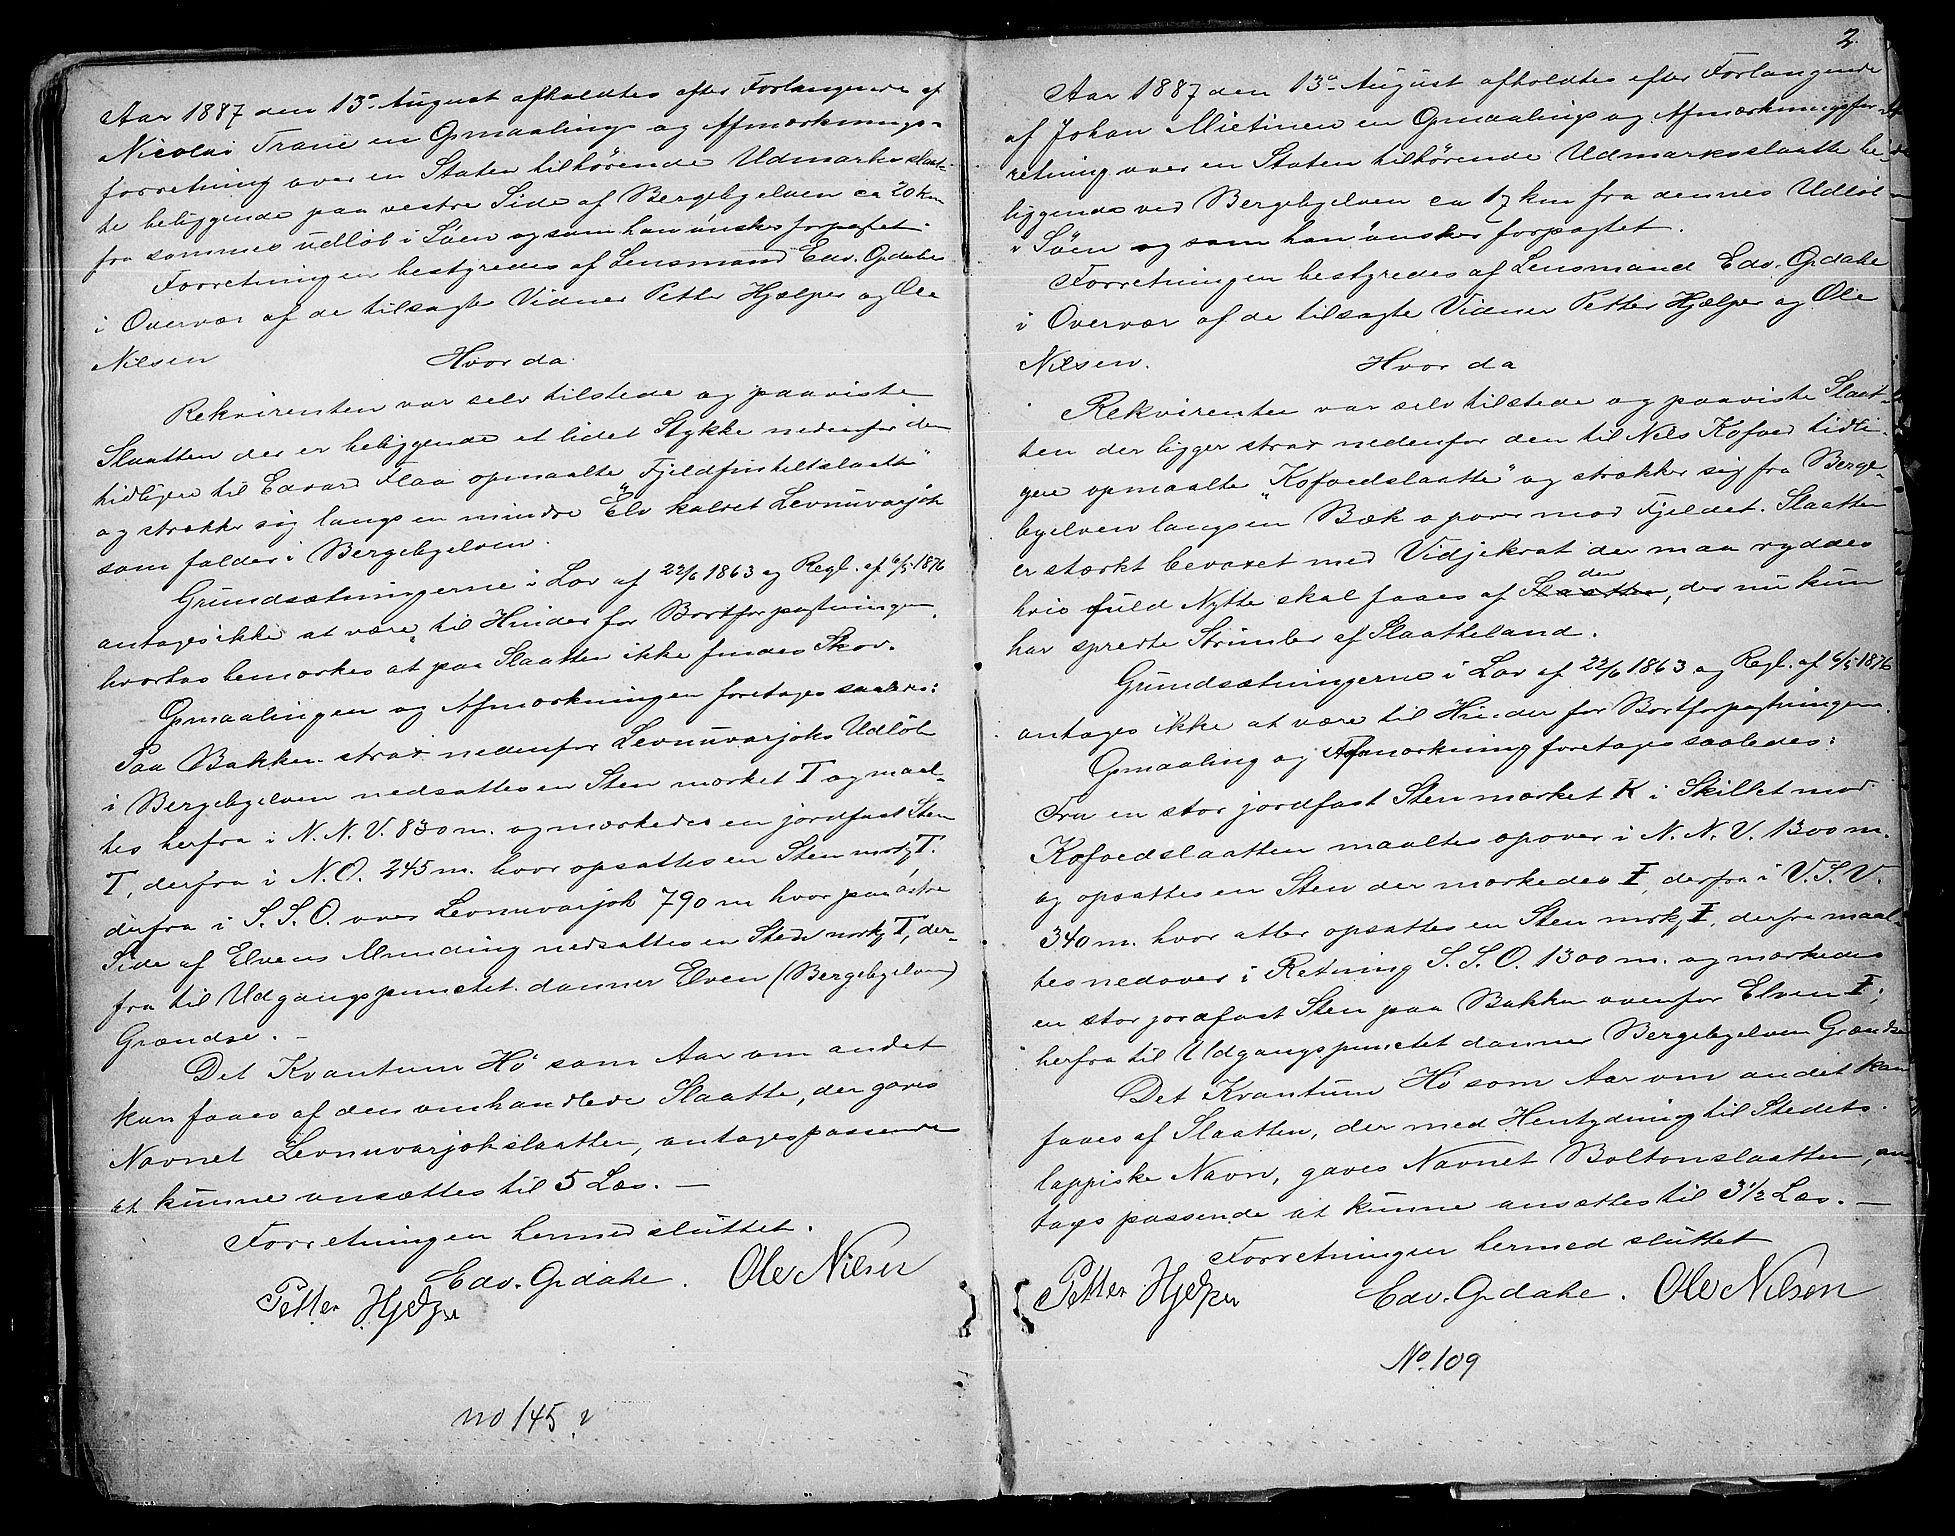 Aar 1887 den 13de August afholdtes efter Forlangende af
Nicolai Trane en Opmaalings og Afmærknings-
forretning over en Staten tilhørende Udmarksslaat-
te beliggende paa vestre Side af Bergebyelven ca 20 km
fra sammes udløb i Søen og som han ønsker forpagtet.
Forretningen bestyredes af Lensmand Edv. Opdahe
i Overvær af de tilsagte Vidner Petter Hjælper og Ole
Nilsen Hvor da
Rekvirenten var selv tilstede og paaviste
Slaatten der er beliggende et lidet Stykke nedenfor den
tidligere til Edvard Flaa opmaalte "Fjeldfinteltslaatte"
og strækker sig langs en mindre Elv kaldet Levnuvarjok
som falder i Bergebyelven.
Grundsætningerne i Lov af 22/6 1863 og Regl. af 6/5 1876
antages ikke at være til Hinder for Bortforpagtningen,
hvorhos bemærkes at paa Slaatten ikke findes Skov.
Opmaalingen og Afmærkningen foretages saaledes:
Paa Bakken strax nedenfor Levnuvarjoks Udløb
i Bergebyelven nedsattes en Sten mærket T og maal-
tes herfra i N. N. V. 830 m. og mærkedes en jordfast Sten
T, derfra i N. O. 245 m. hvor opsattes en Sten mrkt T.
derfra i S. S. O. over Levnuvarjok 790 m hvor paa østre
Side af Elvens Munding nedsattes en Sten mrkt T, der-
fra til Udgangspunctet danner Elven (Bergebyelven)
Grændse. -
Det Kvantum Hø som Aar om andet
kan faaes af den omhandlede Slaatte, der gaves
Navnet Levnuvarjokslaatten, antages passende
at kunne ansættes til 5 Læs. -
Forretningen hermed sluttet.
Petter Hjelper Edv. Opdahe. Ole Nilsen
no 145 ?
2.
Aar 1887 den 13de August afholdtes efter Forlangende
af Johan Mietinen en Opmaalings og Afmærkningsfor-
retning over en Staten tilhørende Udmarksslaatte be-
liggende ved Bergebyelven ca 17 km fra dennes Udløb
i Søen og som han ønsker forpagtet.
Forretningen bestyredes af Lensmand Edv. Opdahe
i Overvær af de tilsagte Vidner Petter Hjælper og Ole
Nilsen. Hvor da
Rekvirenten var selv tilstede og paaviste Slaat-
ten der ligger strax nedenfor den til Nils Kofoed tidli-
gere opmaalte "Kofoedslaatte" og strækker sig fra Berge-
byelven langs en Bæk opover mod Fjeldet. Slaatten
er stærkt bevoxet med Vidjekrat der maa ryddes
hvis fuld Nytte skal faaes af Slaatten den, der nu kun
har spredte Strimler af Slaatteland.
Grundsætningerne i Lov af 22/6 1863 og Regl. af 6/5 1876
antages ikke at være til Hinder for Bortforpagtningen.
Opmaaling og Afmærkning foretages saaledes:
Fra en stor jordfast Sten mærket K i Skillet mod
Kofoedslaatten maaltes opover i N. N. V. 1300 m.
og opsattes en Sten der mærkedes I, derfra i V. S. V.
340 m. hvor atter opsattes en Sten mrkt I, derfra maal-
tes nedover i Retning S. S. O. 1300 m. og mærkedes
en stor jordfast Sten paa Bakken ovenfor Elven I;
herfra til Udgangspunctet danner Bergebyelven Grændse
Det Kvantum Hø som Aar om andet kan
faaes af Slaatten, der med Hentydning til Stedets
lappiske Navn, gaves Navnet Boltonslaatten, an-
tages passende at kunne ansættes til 3 1/2 Læs. -
Forretningen hermed sluttet
Petter Hjelper Edv. Opdahe. Ole Nilsen
No. 109